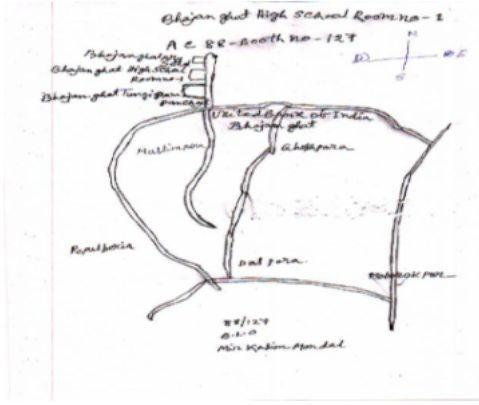 Bhajan ghat High School Room no - 1
A C 88 - Booth no - 127
N
S
Bhajan ghat High School
Room no - 1
Bhajan ghat Tungi gram
Panchat
United Bank of India
Bhajan ghat
Muslimpara
Ghoshpara
Das para
88/127
B.L.O
Mir Kasim Mondal